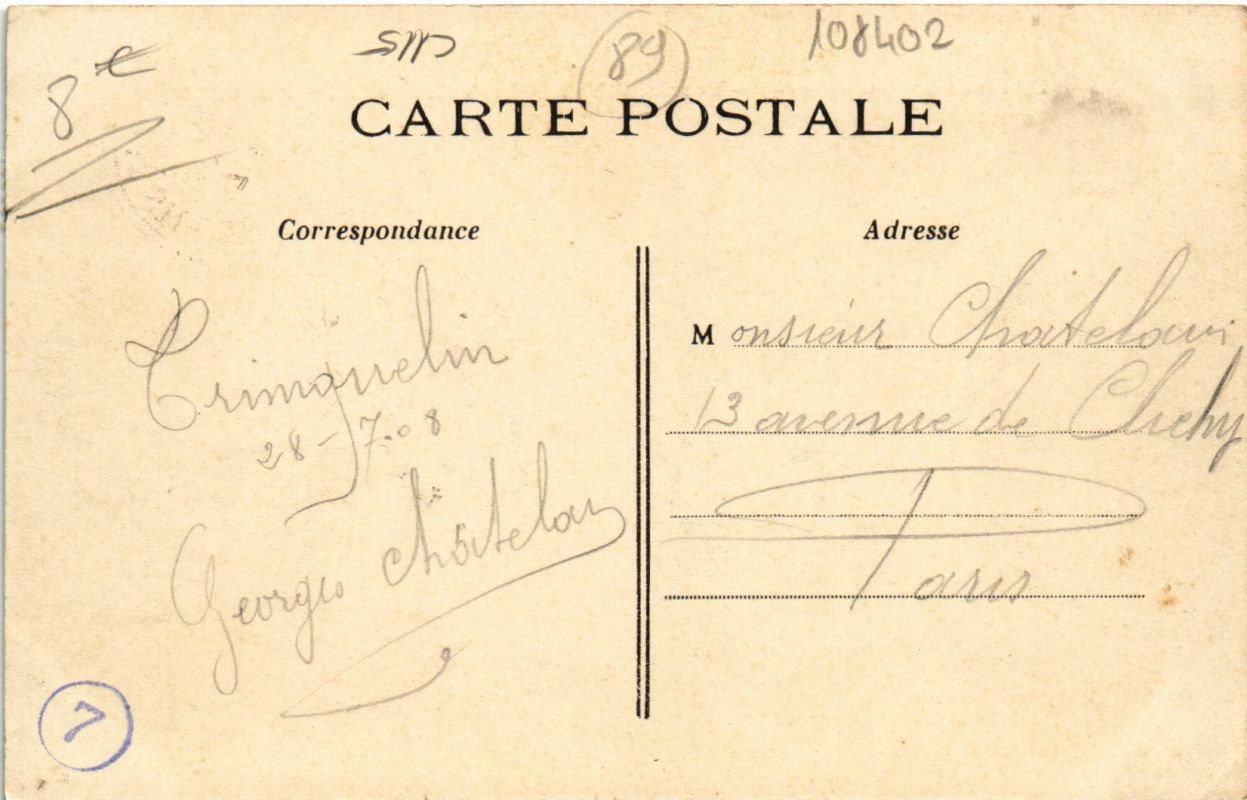 8 €
89
108402
CARTE POSTALE
Correspondance
Trimquelin
28-7-08
Georges Châtelain
7
Adresse
Monsieur Chatelain
13 avenue de Clichy
Paris